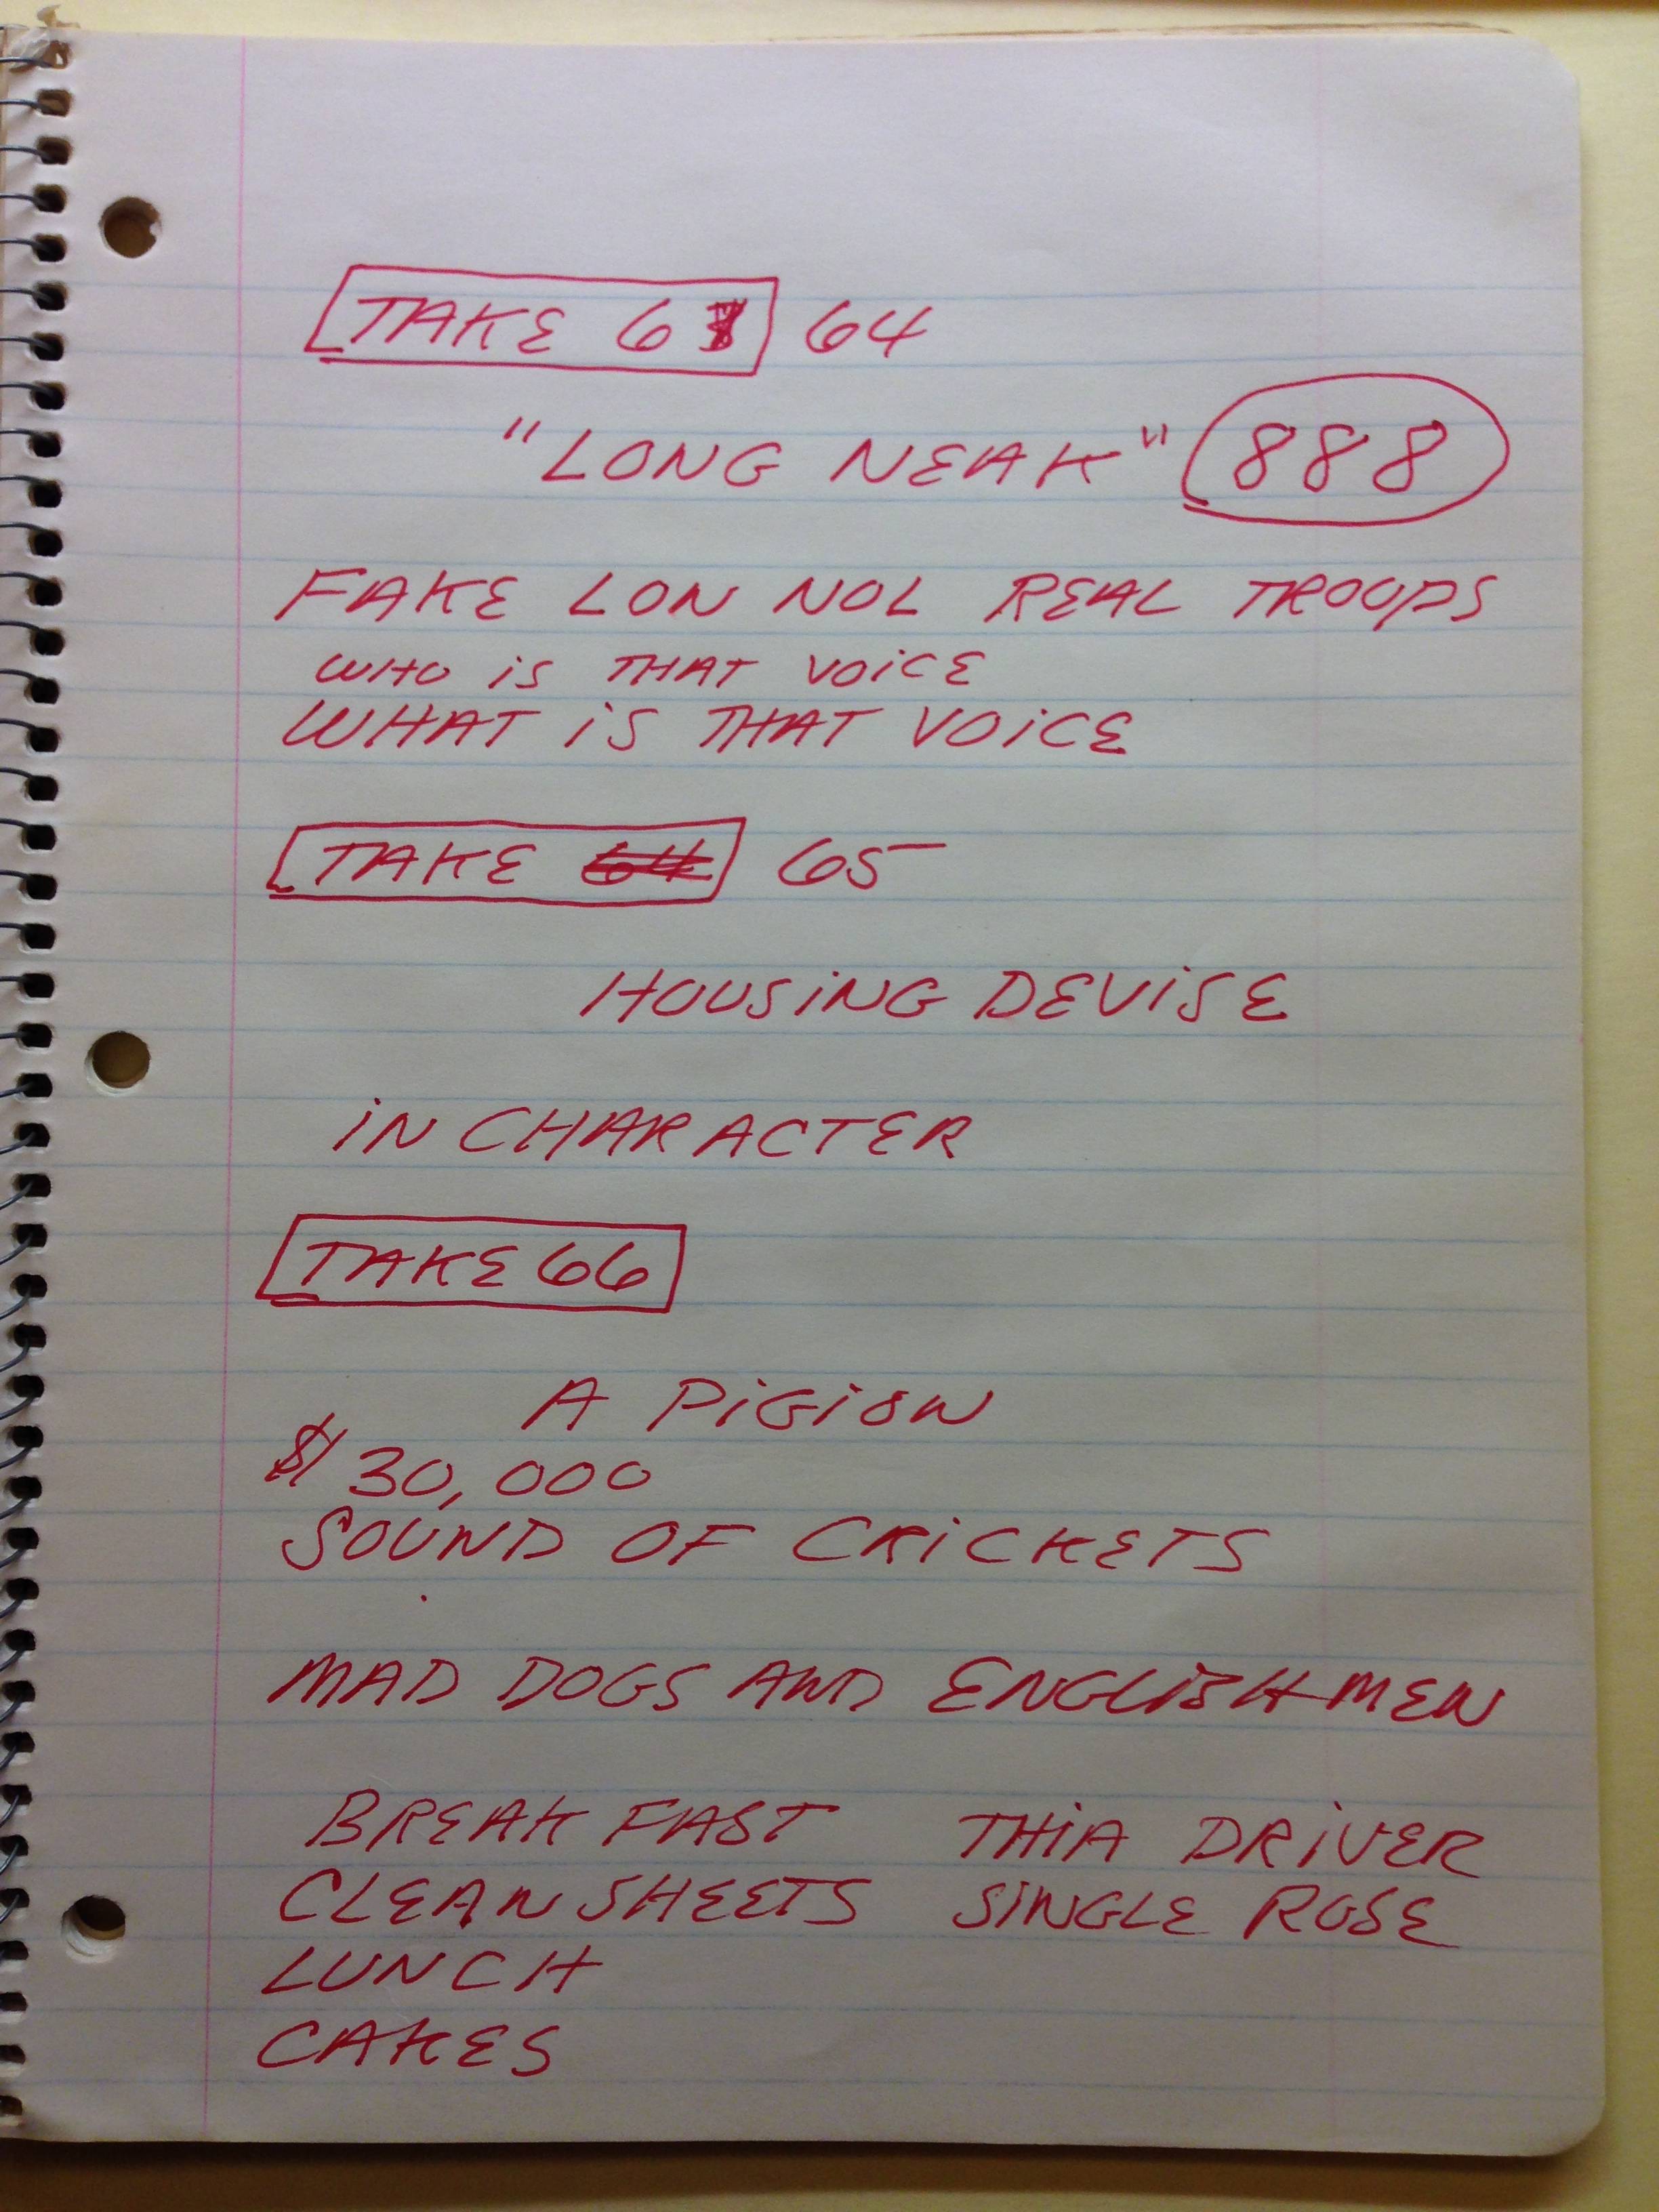 TAKE 63 64
"LONG NEAK" 888
FAKE LON NOL REAL TROOPS
WHO iS THAT VOiCE
WHAT iS THAT VOiCE
TAKE 64 65
HOUSiNG DEViSE
iN CHARACTER
TAKE 66
A PiGiON
$30,000
SOUND OF CRiCKETS
MAD DOGS AND ENGLiSHMEN
BREAKFAST THiA DRiVER
CLEAN SHEETS SiNGLE ROSE
LUNCH
CAKES